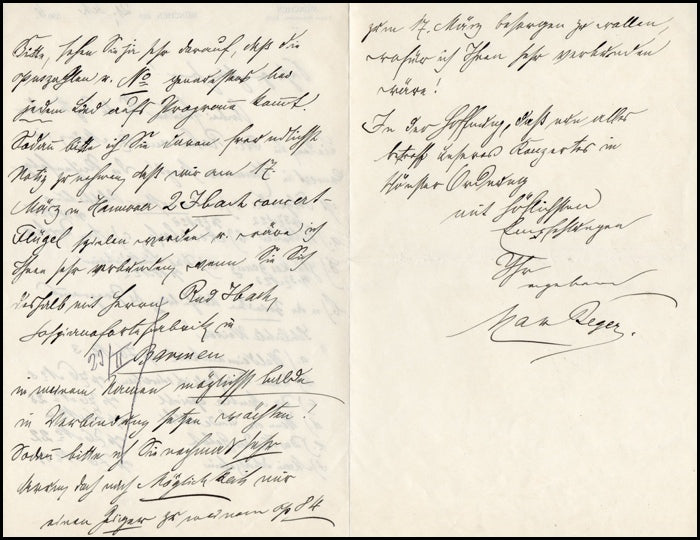 Bitte, sehen Sie ja sehr darauf, daß die
Opuszahlen u. No genauestens bei
jedem Lied aufs Program̄ kom̄t!
Sodan̄ bitte ich Sie davon freundlichst
Notiz zu nehmen, daß wir am 17.
März in Hannover 2 Ibach concert-
Flügel spielen werden u. wäre ich
Ihnen sehr verbunden, wenn Sie Sich
deshalb mit Herrn Rud Ibach,
Hofpianofortefabrik in
23/II Barmen
in meinem Namen möglichst balde
in Verbindung setzen möchten!
Sodan̄ bitte ich Sie nochmals sehr
darum, doch nach Möglichkeit mir
einen Geiger zu meinem op 84
zum 17. März besorgen zu wollen,
wofür ich Ihnen sehr verbunden
wäre!
In der Hoffnung, daß nun alles
betreff unseres Konzertes in
schönster Ordnung
mit höflichsten
Empfehlungen
Ihr
ergebener
Max Reger.